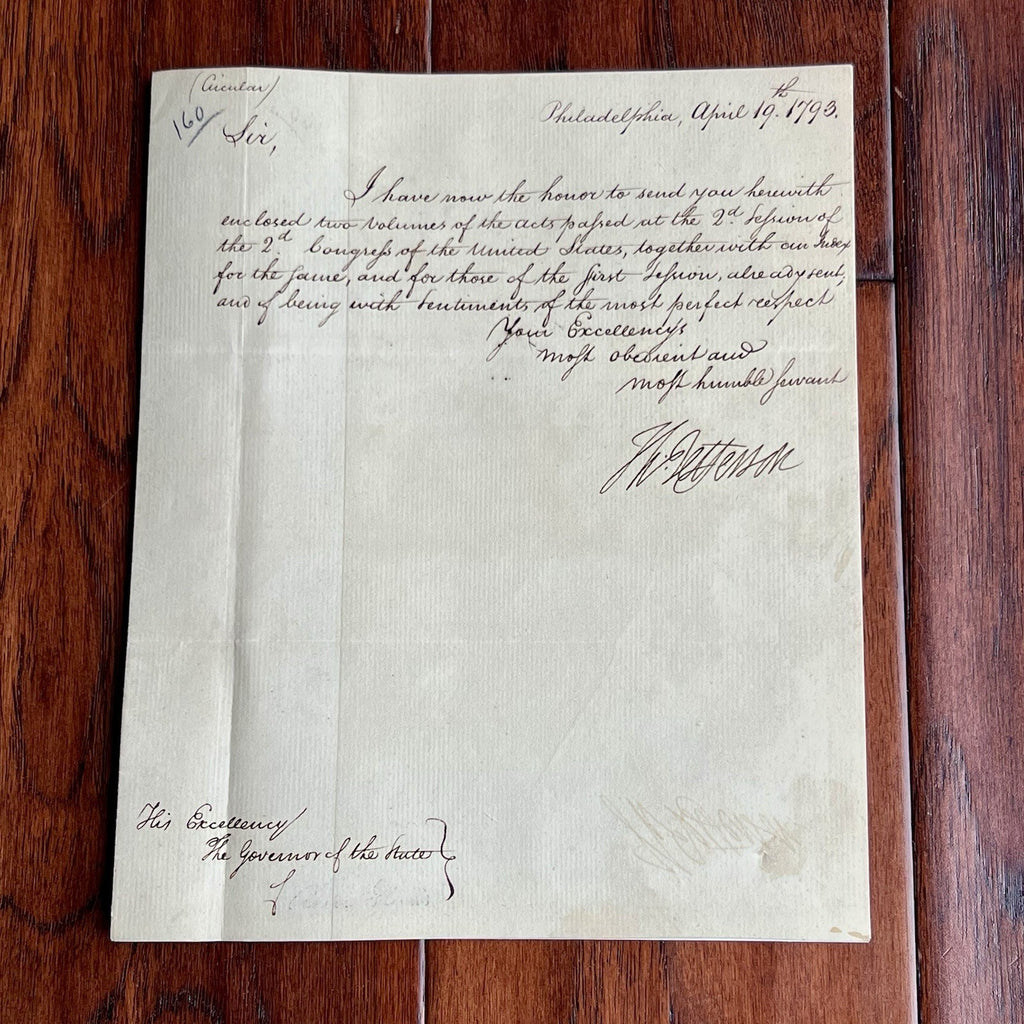 (Circular)
160
Philadelphia, April 19.th 1793.
Sir,
I have now the honor to send you herewith
enclosed two volumes of the acts passed at the 2.d Session of
the 2.d Congress of the United States, together with an Index
for the same, and for those of the first Session, already sent,
and of being with sentiments of the most perfect respect
Your Excellency's
most obedient and
most humble servant
Th: Jefferson
His Excellency
The Governor of the State
of